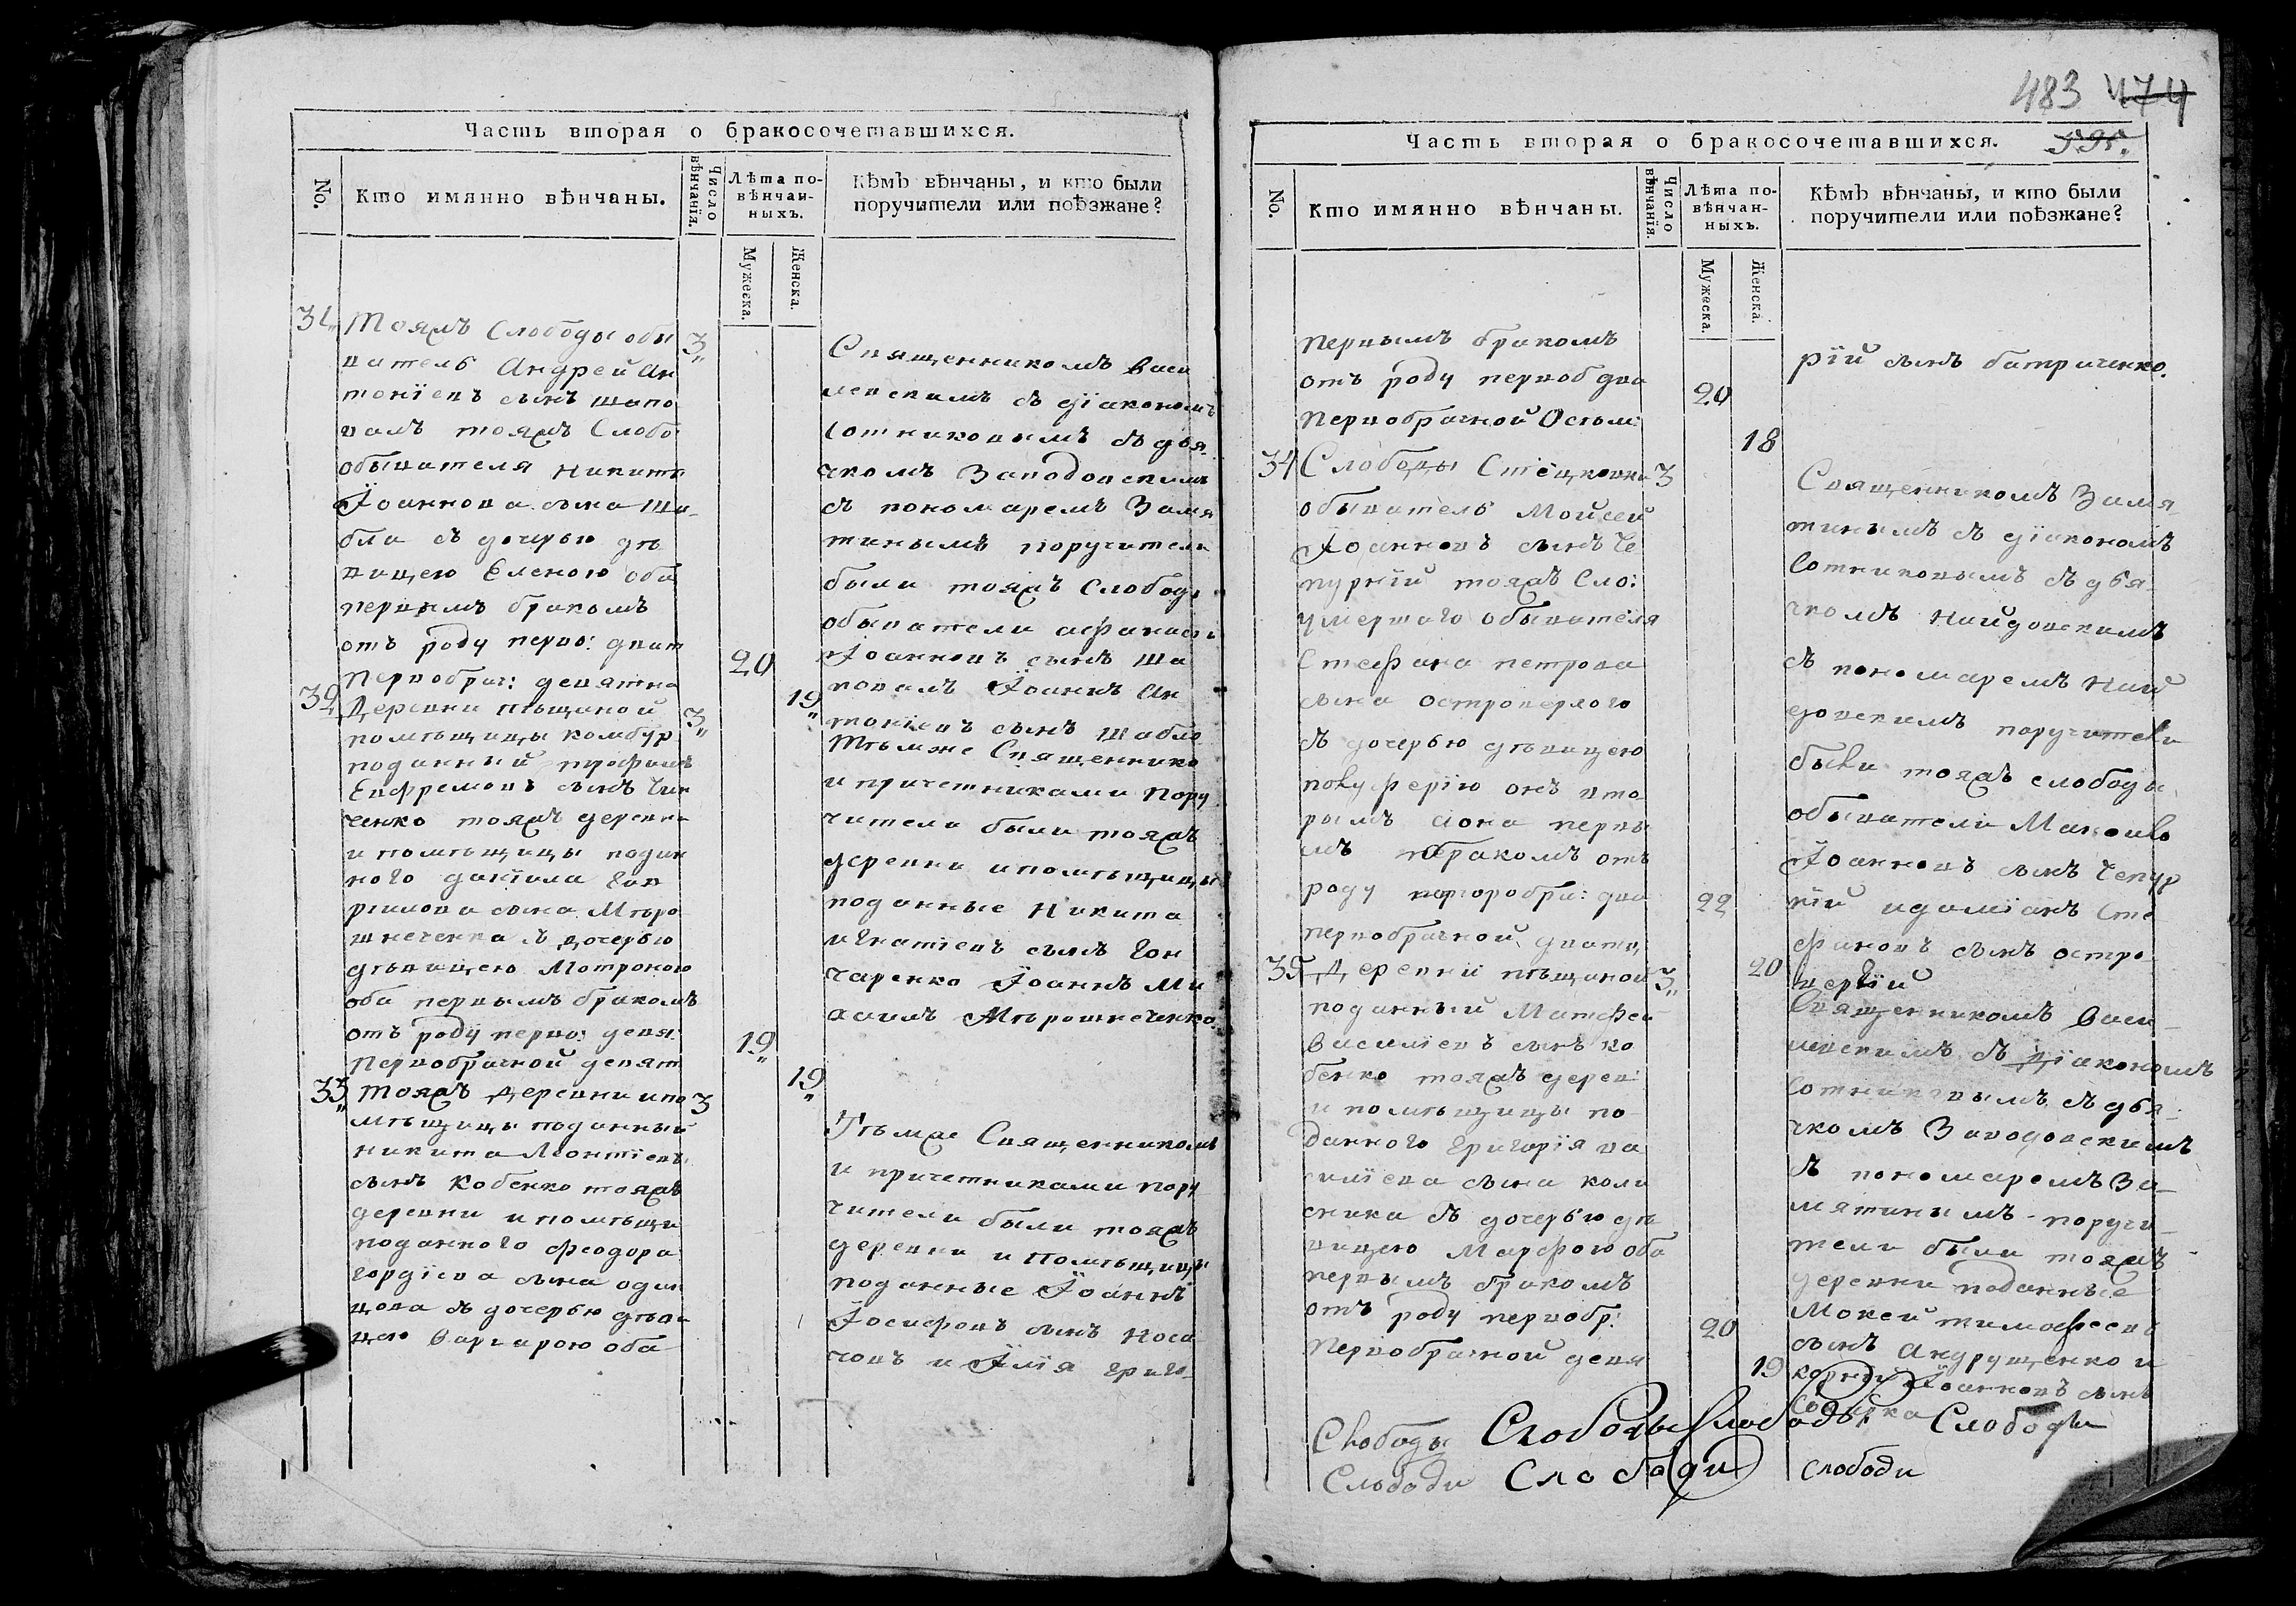 Часть вторая о бракосочетавшихся.
No.
Кто имянно вѣнчаны.
Число вѣнчанїя.
Лѣта по-
вѣнчан-
ныхъ.
Кѣмъ вѣнчаны, и кто были
поручители или поѣзжане?
Мужеска.
Женска.
31
Тояжъ Слободы обы
ватель Андрей Ан
тонїевъ сынъ шапо
валъ тояжъ Слобо
обывателя Никиты
Іоаннова сына Ша
бла съ дочерью дѣ
вицею Еленою оба
первымъ бракомъ
отъ роду перво: дват
Первобрач: девятна
3
20
19
Священникомъ Васи
левскимъ съ дїакономъ
Сотниковымъ съ дья
чкомъ Заводовскимъ
съ пономаремъ Замя
тинымъ поручители
были тояжъ Слободы
обыватели афанасїи
Іоанновъ сынъ Ша
повалъ Іоаннъ Ан
тонїевъ сынъ Шабло
32
Деревни пѣщаной
помѣщицы комбур
поданный трофимъ
Евфремовъ сынъ
ченко тояжъ деревни
и помѣщицы подан
ного данїила Гав
рїилова сына Мѣро
шнеченка съ дочерью
дѣвицею Мотроною
оба первымъ бракомъ
отъ роду перво: девя:
Первобрачной девят
3
19
19
Тѣмже Священнико
и причетниками Пору
чители были тояжъ
деревни и помѣщицы
поданные Никита
игнатїевъ сынъ Гон
чаренко Іоаннъ Ми
хаилъ Мѣрошнеченко
33
Тояжъ Деревни и по
мѣщицы поданный
никита Леонтїевъ
сынъ Кобенко тояжъ
деревни и помѣщи
поданного феодора
Гордїева сына один
цова съ дочерью дѣви
цею Варварою оба
3
Тѣмже Священникомъ
и причетниками пору
чители были тояжъ
деревни и Помѣщицы
поданные Іоаннъ
Іосифовъ сынъ Носа
човъ и Илїя григо
483 474
Часть вторая о бракосочетавшихся.
No.
Кто имянно вѣнчаны.
Число вѣнчанїя.
Лѣта по-
вѣнчан-
ныхъ.
Кѣмъ вѣнчаны, и кто были
поручители или поѣзжане?
Мужеска.
Женска.
первымъ бракомъ
отъ роду первоб два
Первобрачной Осьм:
20
18
рїй сынъ батраченко.
34
Слободы Стецковки
обыватель Мойсей
Іоанновъ сынъ Че
пурнїй тояжъ Сло:
умершаго обывателя
Стефана петрова
сына островерхого
съ дочерью дѣвицею
онъ вто
рымъ аона первы
мъ бракомъ отъ
роду второбра: два
первобрачной двадц
3
22
20
Священникомъ Замя
тинымъ съ дїакономъ
Сотниковымъ съ дья
чкомъ Найдовскимъ
съ пономаремъ Най
довскимъ поручители
были тояжъ слободы
обыватели Мануилъ
Іоанновъ сынъ Чепур
нїй идамїанъ Сте
фановъ сынъ остро
верхїй
35
Деревни пѣщаной
поданный Матфей
Василїевъ сынъ ко
бенко тояжъ дерев:
и помѣщицы по
данного Григорїя ва
силїева сына коле
сника съ дочерью дѣ
вицею Марфою оба
первымъ бракомъ
отъ роду первобр:
Первобрачной девя
3
20
19
Священникомъ Васи
левскимъ съ Дїакономъ
Сотниковымъ съ дья
чкомъ Заводовскимъ
съ пономаремъ За
мятинымъ поручи
тели были тояжъ
деревни поданные
Мокей тимофеевъ
сынъ Андрущенко и
корнїй Іоанновъ сынъ
Слободы Слободы Слободы Слободы
Слободи Слободи слободи